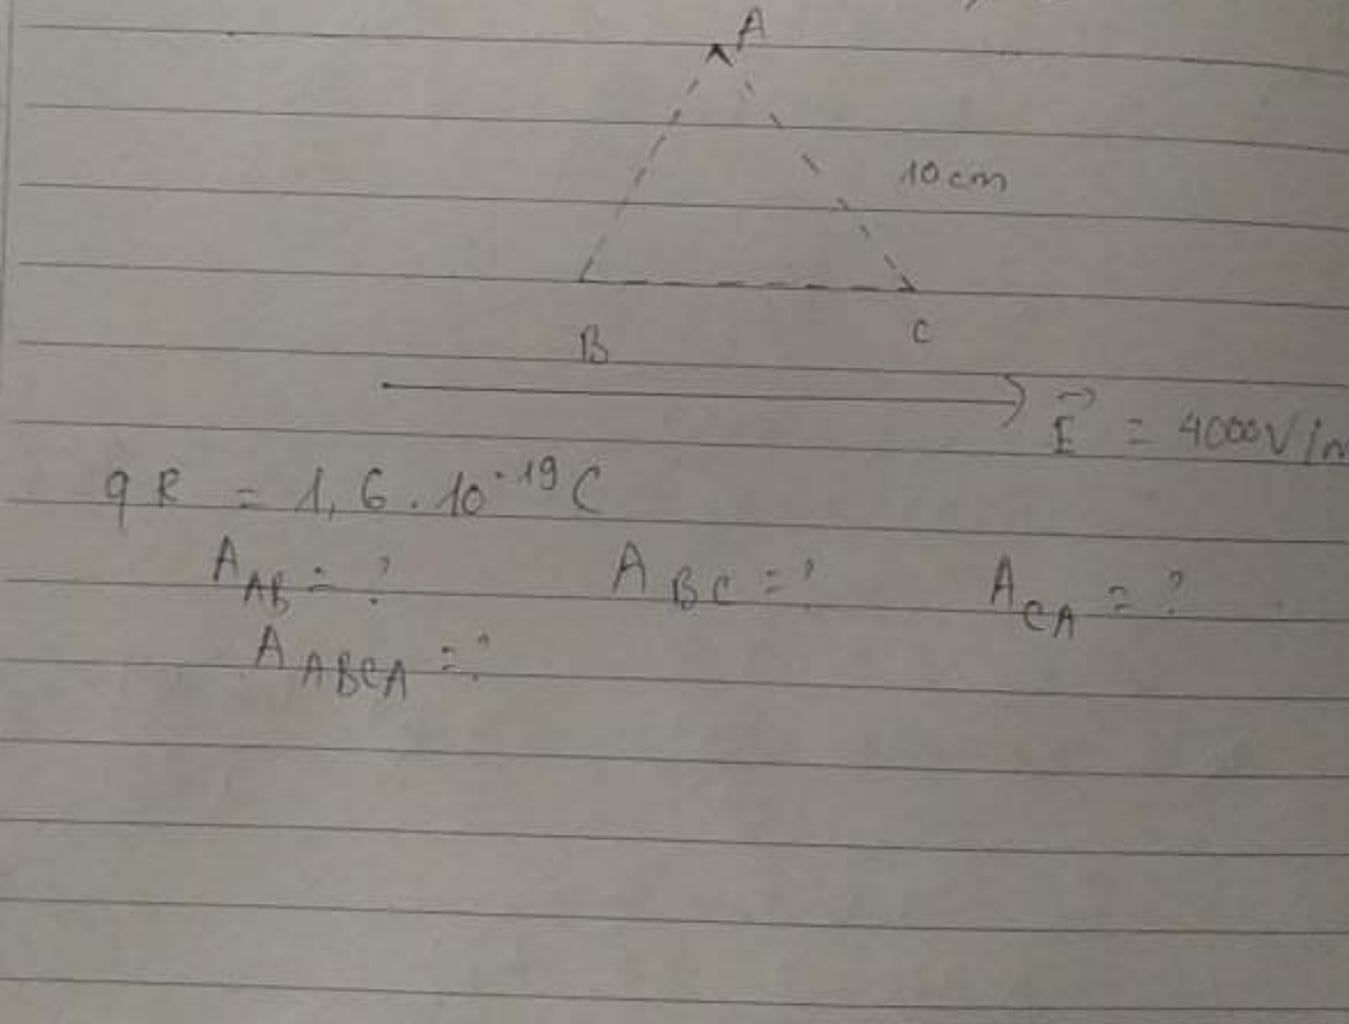 A
10 cm
B C
E⃗ = 4000V/m
qR = 1,6 . 10⁻¹⁹ C
A_AB = ? A_BC = ? A_CA = ?
A_ABCA = ?